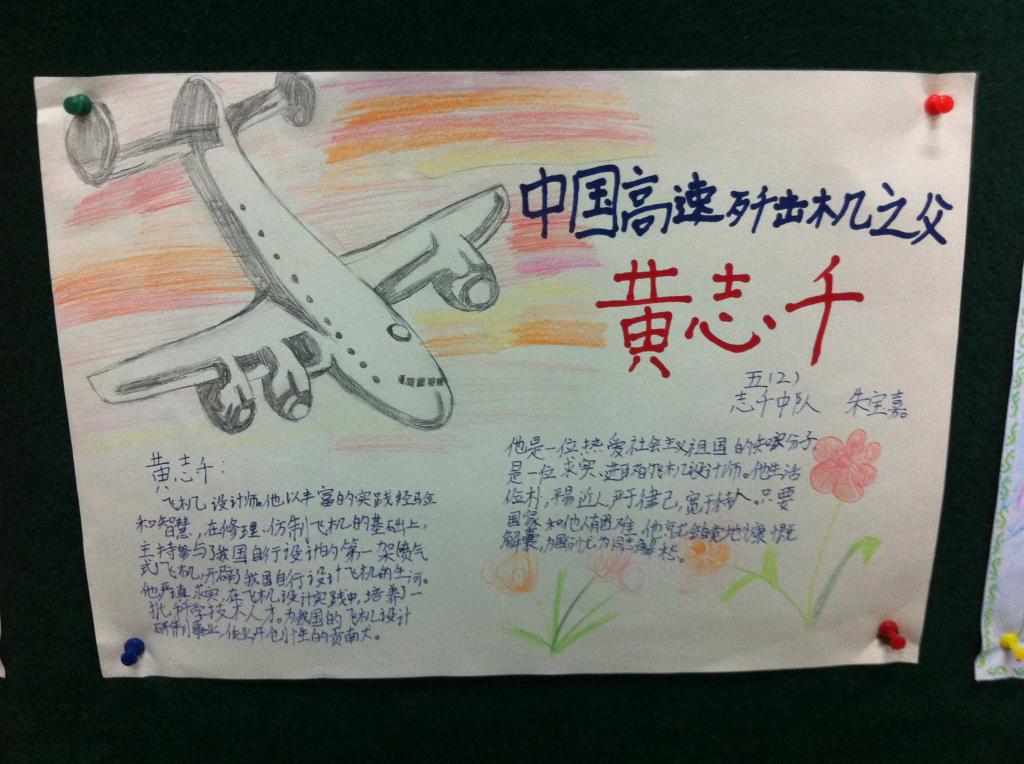 中国高速歼击机之父
黄志千
五(2)
志千中队 朱宝嘉
黄志千:
飞机设计师。他以丰富的实践经验
和智慧,在修理、仿制飞机的基础上,
主持参与了我国自行设计的第一架喷气
式飞机,开辟了我国自行设计飞机的生河。
他严谨求实,在飞机设计实践中,培养了一
批科学技术人才。为我国的飞机设计
研制事业,作出开创性的贡献。
他是一位热爱社会主义祖国的知识分子,
是一位求实、进取的飞机设计师。他生活
俭朴,平易近人,严于律己,宽于待人。只要
国家和他人有困难,他就会自觉地慷慨
解囊,为国分忧,为同志解愁。